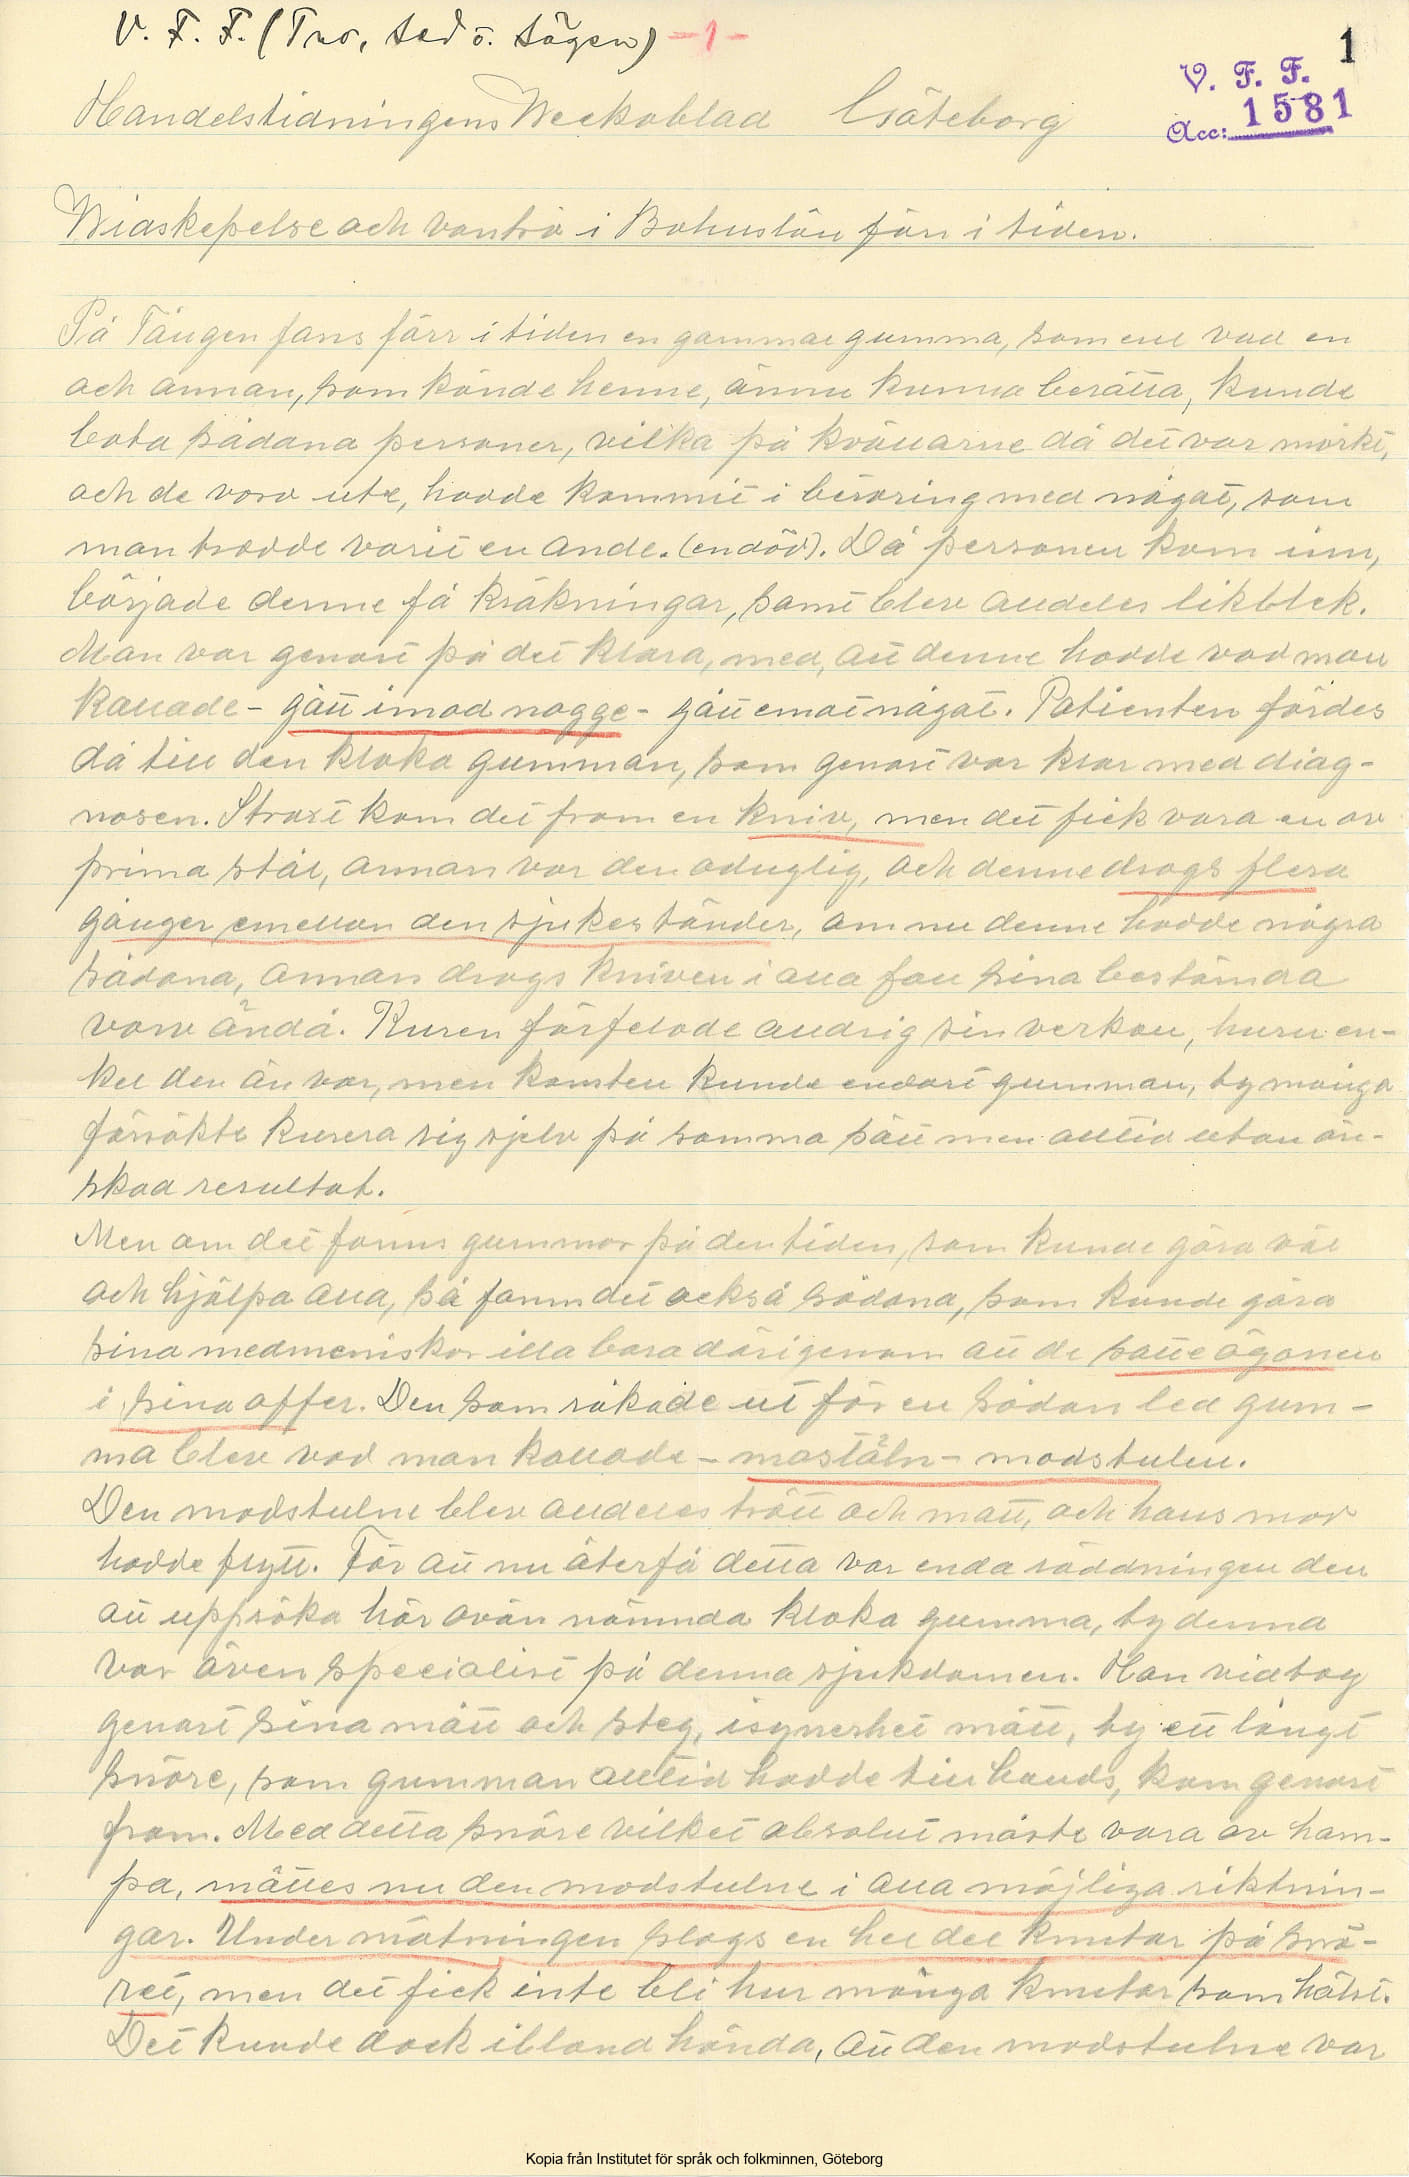 V. F. F. (Tro, sed o. sägen) -1-
1
V. F. F.
Acc: 1581
Handelstidningens Weckoblad Göteborg
Widskepelse och vantro i Bohuslän förr i tiden.
På Tången fans förr i tiden en gammal gumma, som enl vad en
och annan, som kände henne, ännu kunna berätta, kunde
bota sådana personer, vilka på kvällarne då det var mörkt,
och de voro ute, hade kommit i beröring med något, som
man trodde varit en ande. (en död). Då personen kom inn,
började denne få kräkningar, samt blev alldeles likblek.
Man var genast på det klara, med, att denne hadde vad man
kallade - gått imod nogge - gått emot något. Patienten fördes
då till den kloka gumman, som genast var klar med diag-
nosen. Straxt kom det fram en kniv, men det fick vara en av
prima stål, annars var den oduglig, och denne drogs flera
gånger emellan den sjukes tänder, om nu denne hadde några
sådana, annars drogs kniven i alla fall sina bestämda
varv ändå. Kuren förfelade aldrig sin verkan, huru en-
kel den än var, men konsten kunde endast gumman, ty många
försökte kurera sig sjelv på samma sätt men alltid utan ön-
skad resultat.
Men om det fanns gummor på den tiden, som kunde göra väl
och hjälpa alla, så fanns det också sådana, som kunde göra
sina medmeniskor illa bara därigenom att de satte ögonen
i sina offer. Den som råkade ut för en sådan led gum-
ma blev vad man kallade - mostäln - modstulen.
Den modstulne blev alldeles trött och matt, och hans mod
hadde flytt. För att nu återfå detta var enda räddningen den
att uppsöka här ovan nämnda kloka gumma, ty denna
var även specialist på denna sjukdomen. Hon vidtog
genast sina mått och steg, isynnerhet mått, ty ett långt
snöre, som gumman alltid hadde till hands, kom genast
fram. Med detta snöre vilket absolut måste vara av ham-
pa, mättes nu den modstulne i alla möjliga riktnin-
gar. Under mätningen slogs en hel del knutar på snö-
ret, men det fick inte bli hur många knutar som hälst.
Det kunde dock ibland hända, att den modstulne var
Kopia från Institutet för språk och folkminnen, Göteborg